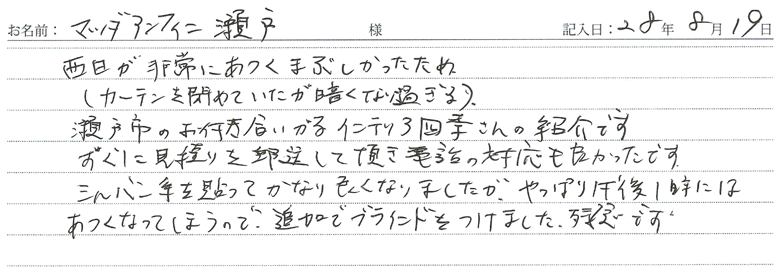 お名前: マツダアンフィニ瀬戸 様 記入日: 28年 8月 19日
西日が非常にあつくまぶしかったため
(カーテンを閉めていたが暗くなり過ぎる)。
瀬戸市のお付き合いがるインテリア四季さんの紹介です
すぐに見積りを郵送して頂き電話の対応も良かったです
ミルバン車を貼ってかなり良くなりましたが、やっぱり午後1時には
あつくなってしまうので、追加でブラインドをつけました、残念です